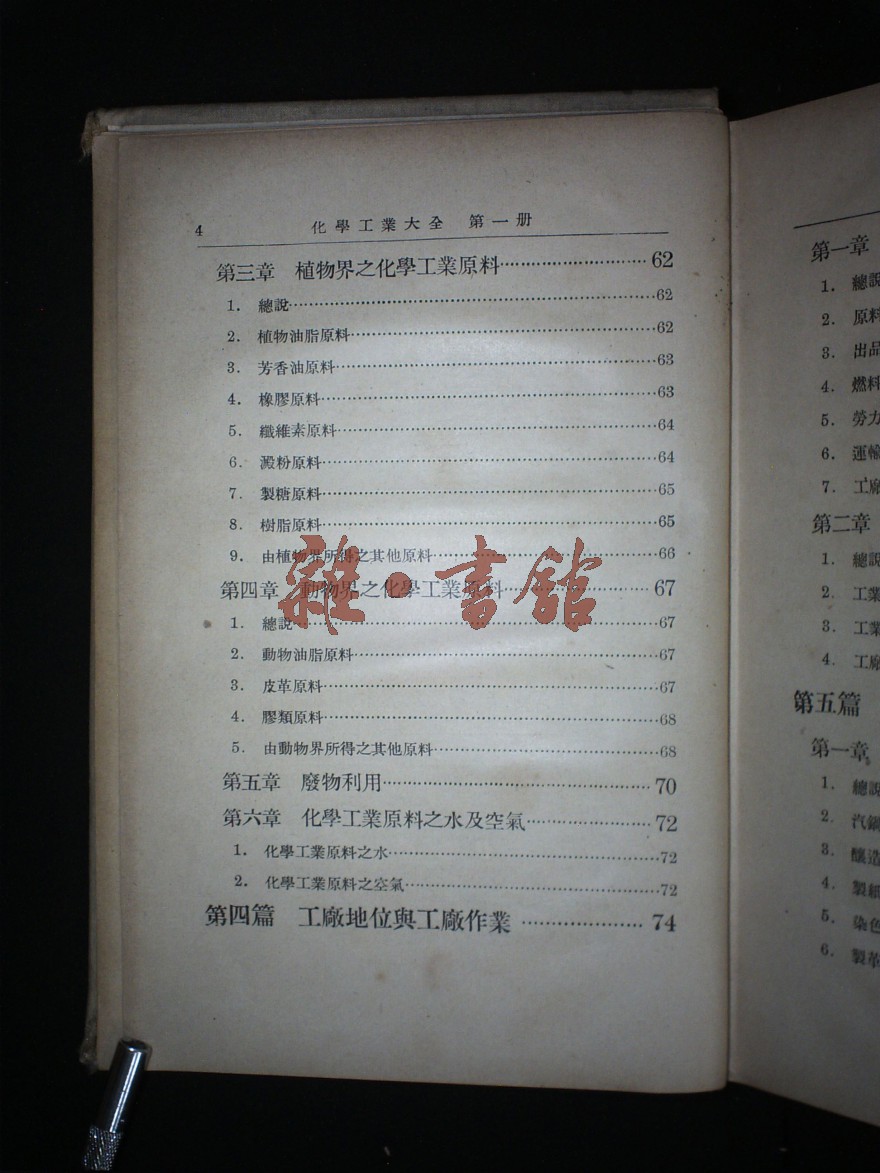 4 化學工業大全 第一册
第三章 植物界之化學工業原料 62
1. 總說 62
2. 植物油脂原料 62
3. 芳香油原料 63
4. 橡膠原料 63
5. 纖維素原料 64
6. 澱粉原料 64
7. 製糖原料 65
8. 樹脂原料 65
9. 由植物界所得之其他原料 66
第四章 動物界之化學工業原料 67
1. 總說 67
2. 動物油脂原料 67
3. 皮革原料 67
4. 膠類原料 68
5. 由動物界所得之其他原料 68
第五章 廢物利用 70
第六章 化學工業原料之水及空氣 72
1. 化學工業原料之水 72
2. 化學工業原料之空氣 72
第四篇 工廠地位與工廠作業 74
雜·書館
第一章
1. 總說
2. 原料
3. 出品
4. 燃料
5. 勞力
6. 運輸
7. 工廠
第二章
1. 總說
2. 工業
3. 工業
4. 工廠
第五篇
第一章
1. 總說
2. 汽鍋
3. 釀造
4. 製紙
5. 染色
6. 製革